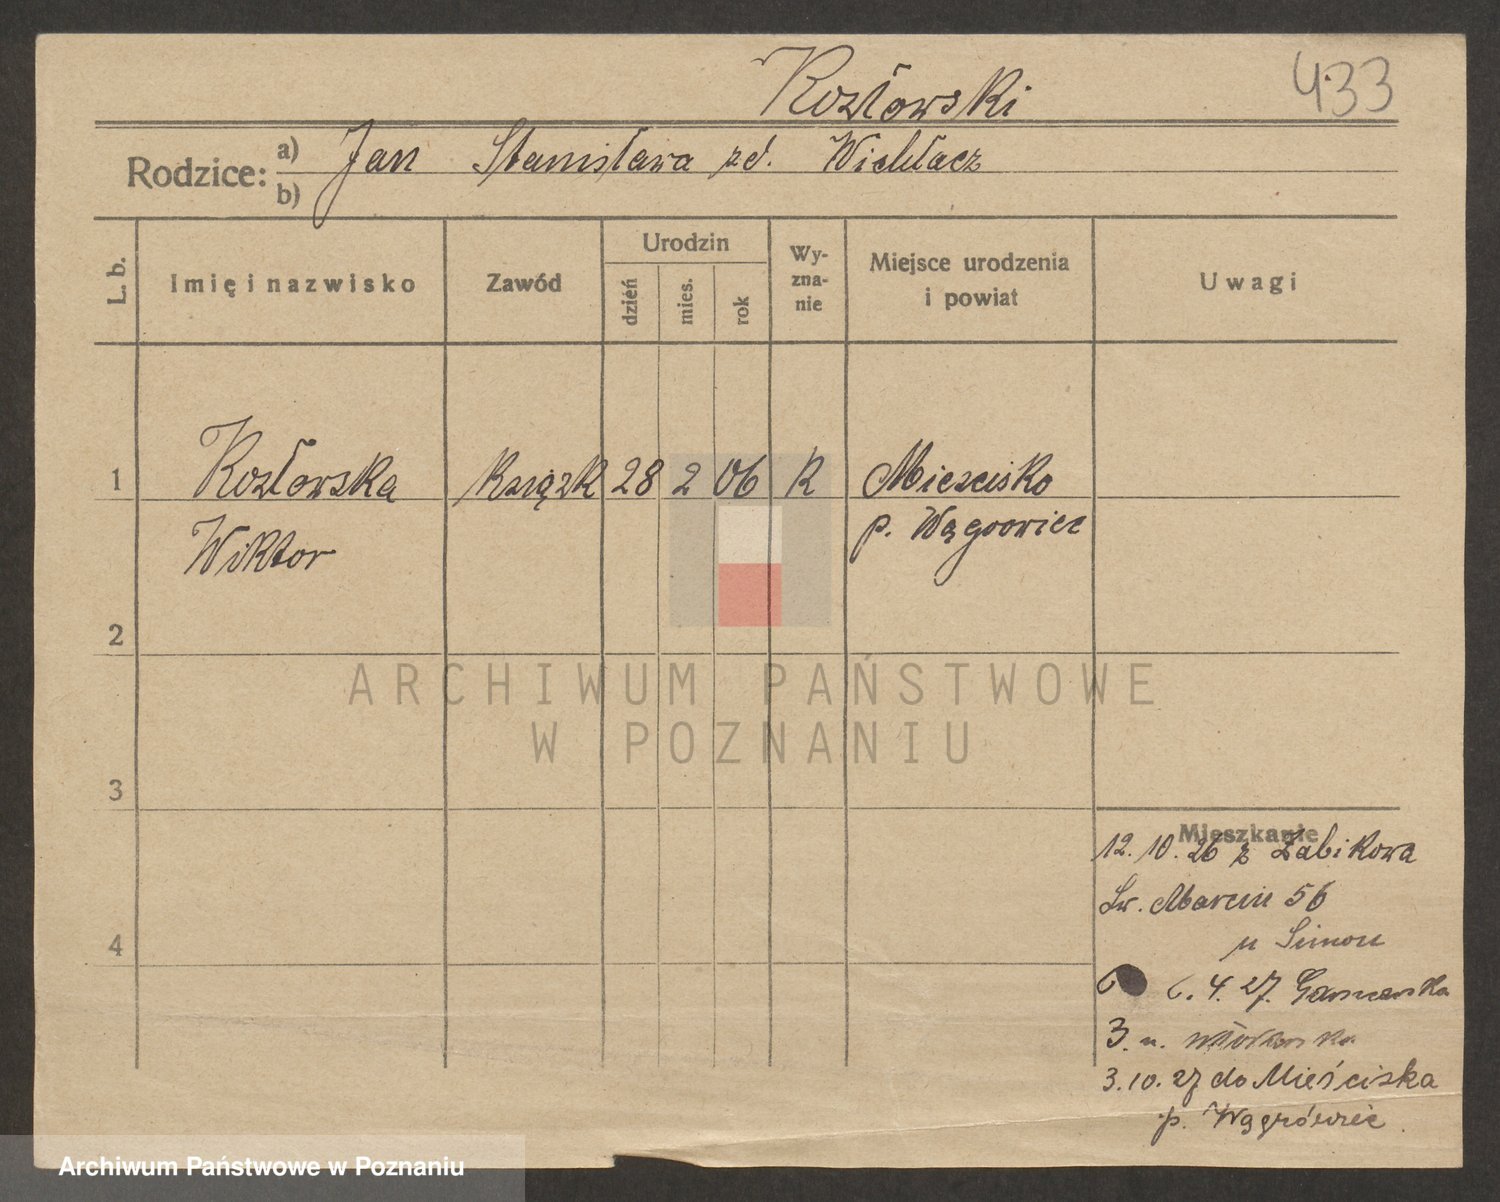 Kozłowski 433
Rodzice: a) Jan Stanisława zd. Wichłacz
b)
L. b. Imię i nazwisko Zawód Urodzin dzień mies. rok Wyznanie Miejsce urodzenia i powiat Uwagi
1 Kozłowska Książk 28 2 06 R Miescisko
Wiktor p. Wągrowiec
2
ARCHIWUM PAŃSTWOWE
W POZNANIU
3
Mieszkanie
12. 10. 26 z Żabikowa
Św. Marcin 56
4
u Simon
6. 4. 27.
3. u.
3. 10. 27 do Mieściska
p. Wągrówiec.
Archiwum Państwowe w Poznaniu